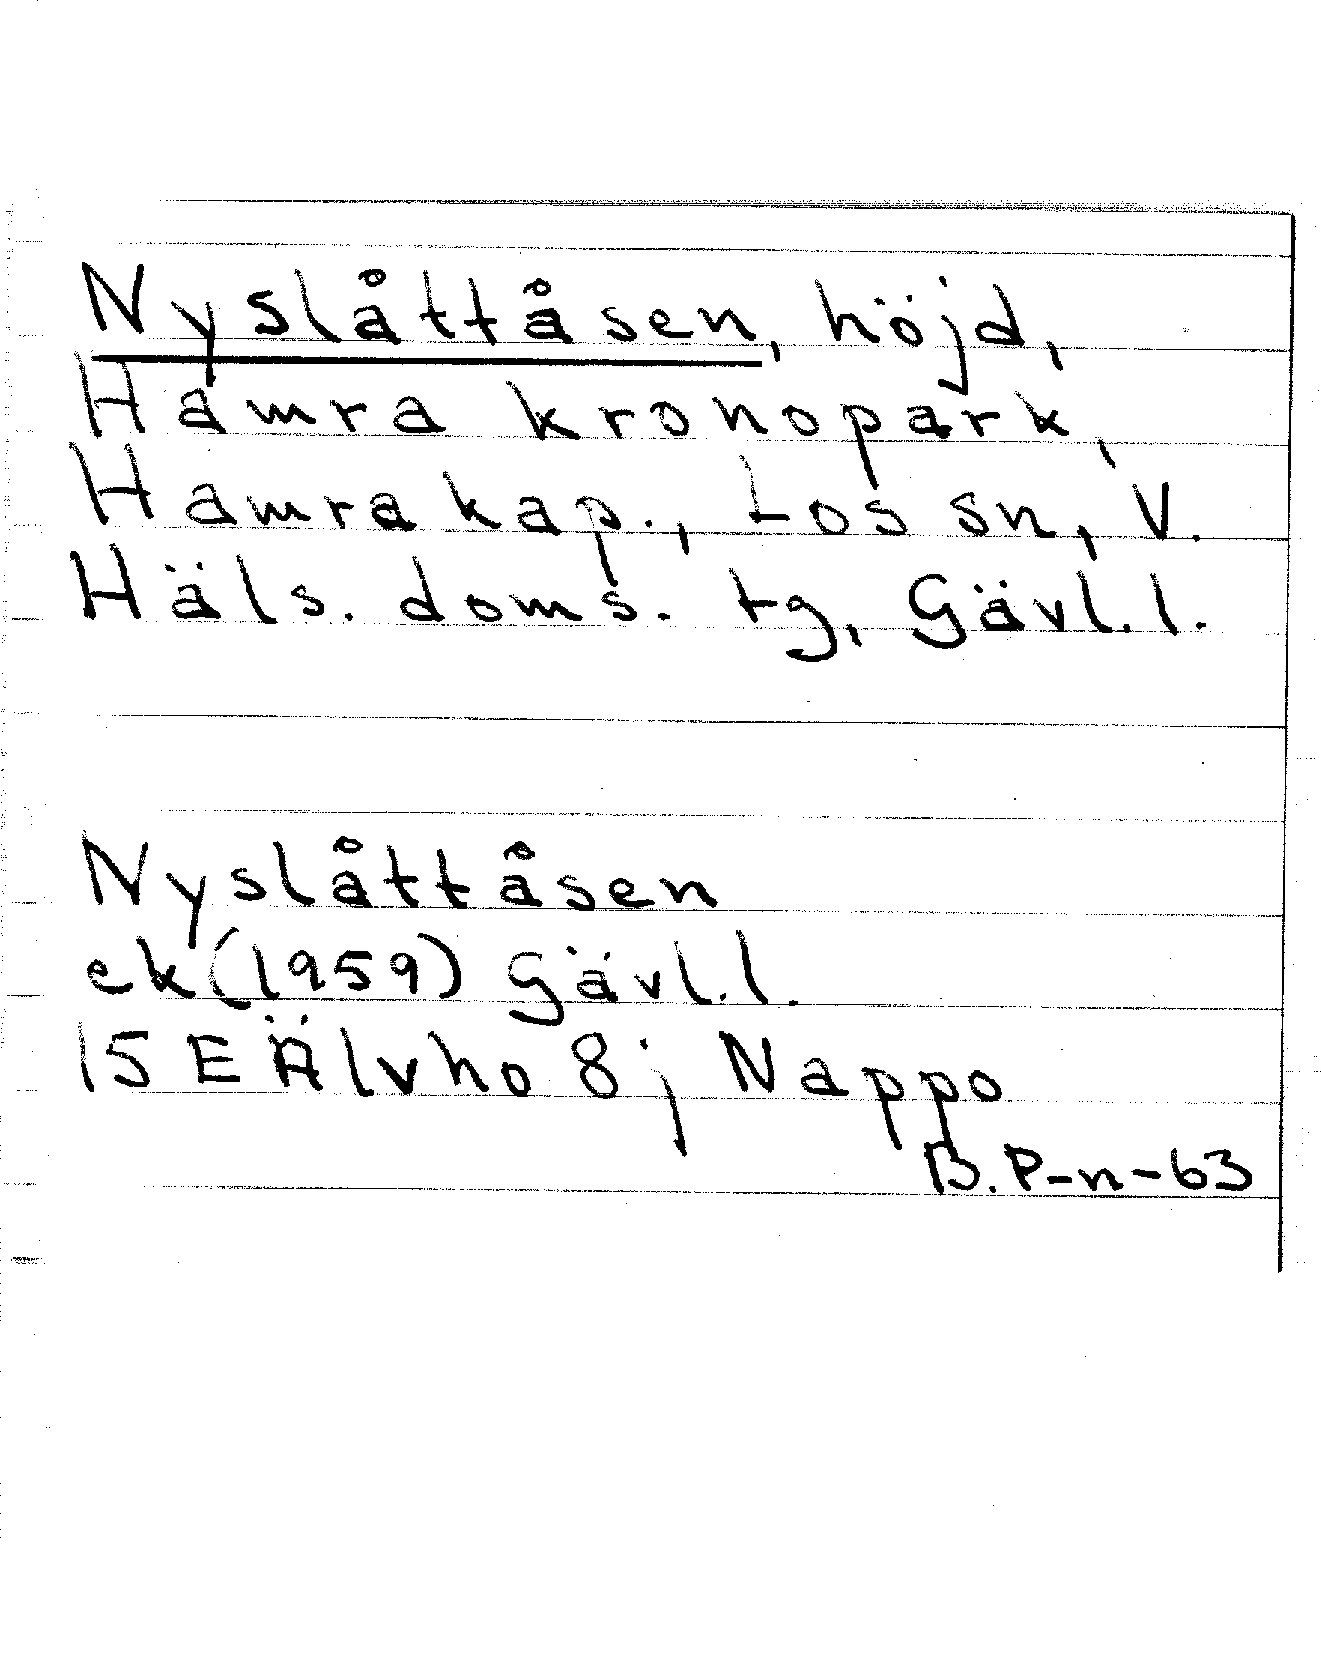 Nyslåttåsen, höjd,
Hamra kronopark,
Hamra kap., Los sn, V.
Häls. doms. tg, Gävl.l.
Nyslåttåsen
ek(1959) Gävl.l.
15 E Älvho 8j Nappo
B.P-n-63